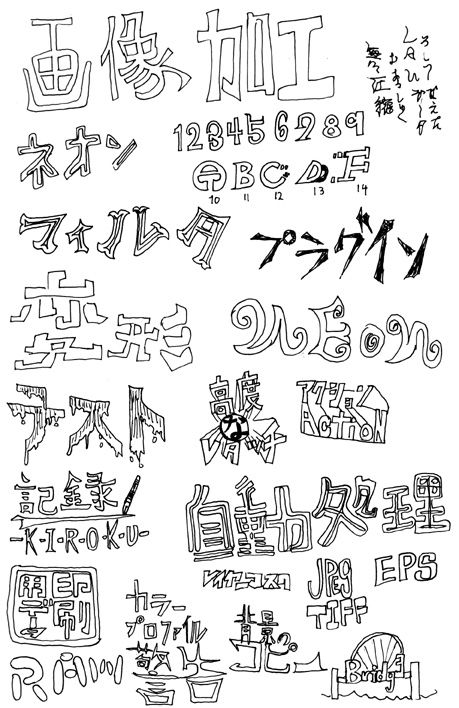 画像加工
ネオン
123456789
ABCDEF
10 11 12 13 14
フィルタ
プラグイン
変形
NEON
テスト
高度
な
レタッチ
アクション
ACTiON
記録
-K-I-R-O-K-U-
自動処理
レイヤーマスク
JPEG
TIFF
EPS
印刷
用データ
カラー
プロファイル
背景
コピー
警告
RAW
Bridge